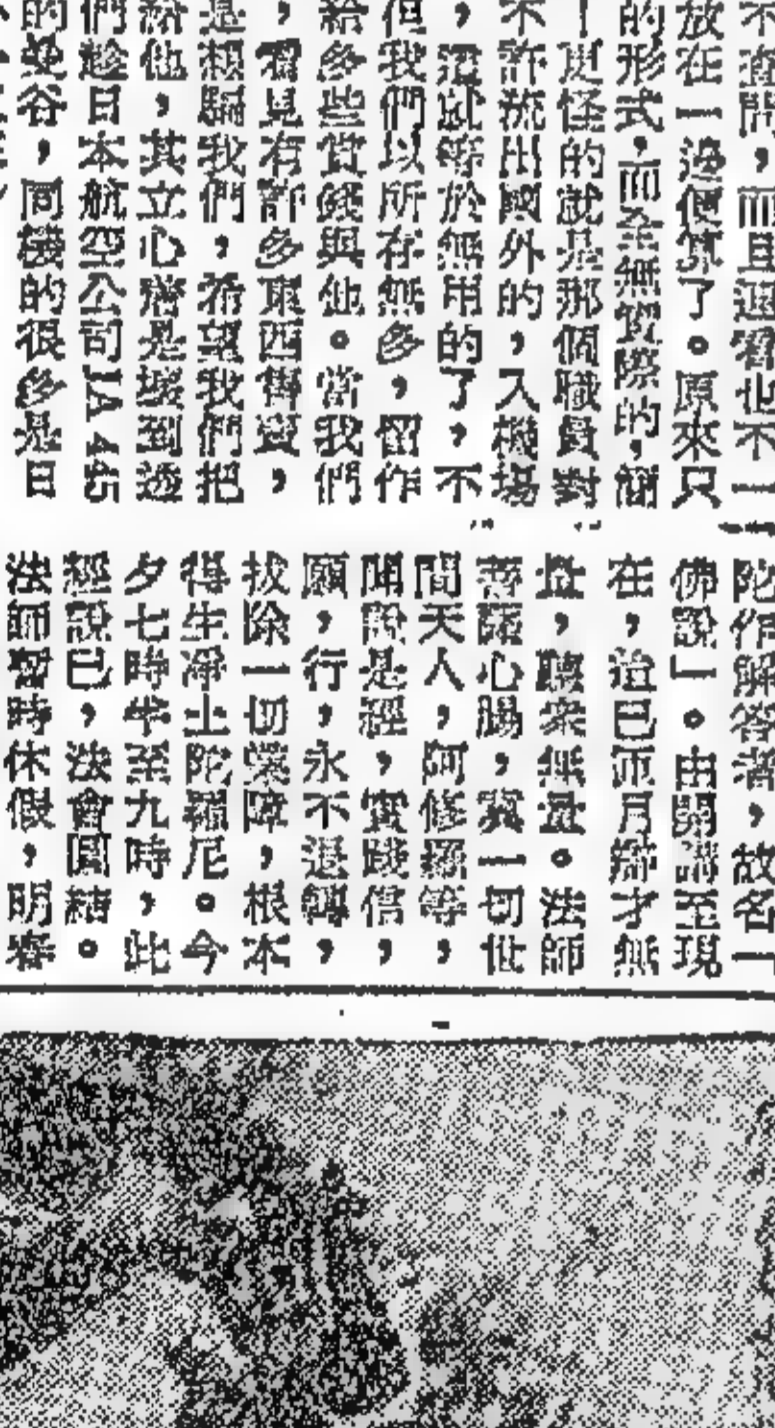 不查問，而且連看也不一
放在一邊便算了。原來只
的形式，而全無實際的，簡
更怪的就是那個職員對
不許流出國外的，入機場
，還就等於無用的了，不
但我們以所存無多，留作
給多些賞錢與他。當我們
，看見有許多東西售賣，
是想騙我們，希望我們把
給他，其立心
們趁日本航空公司JA 445
的曼谷，同機的很多是日
陀作解答者，故名一
佛說」。由開講至現
在，治已兩月，辯才無
量，聽眾無量。法師
菩薩心腸，冀一切世
間天人，阿修羅等，
聞說是經，實踐信，
願，行，永不退轉，
拔除一切業障，根本
得生淨土陀羅尼。今
夕七時半至九時，此
經說已，法會圓結。
法師暫時休假，明春